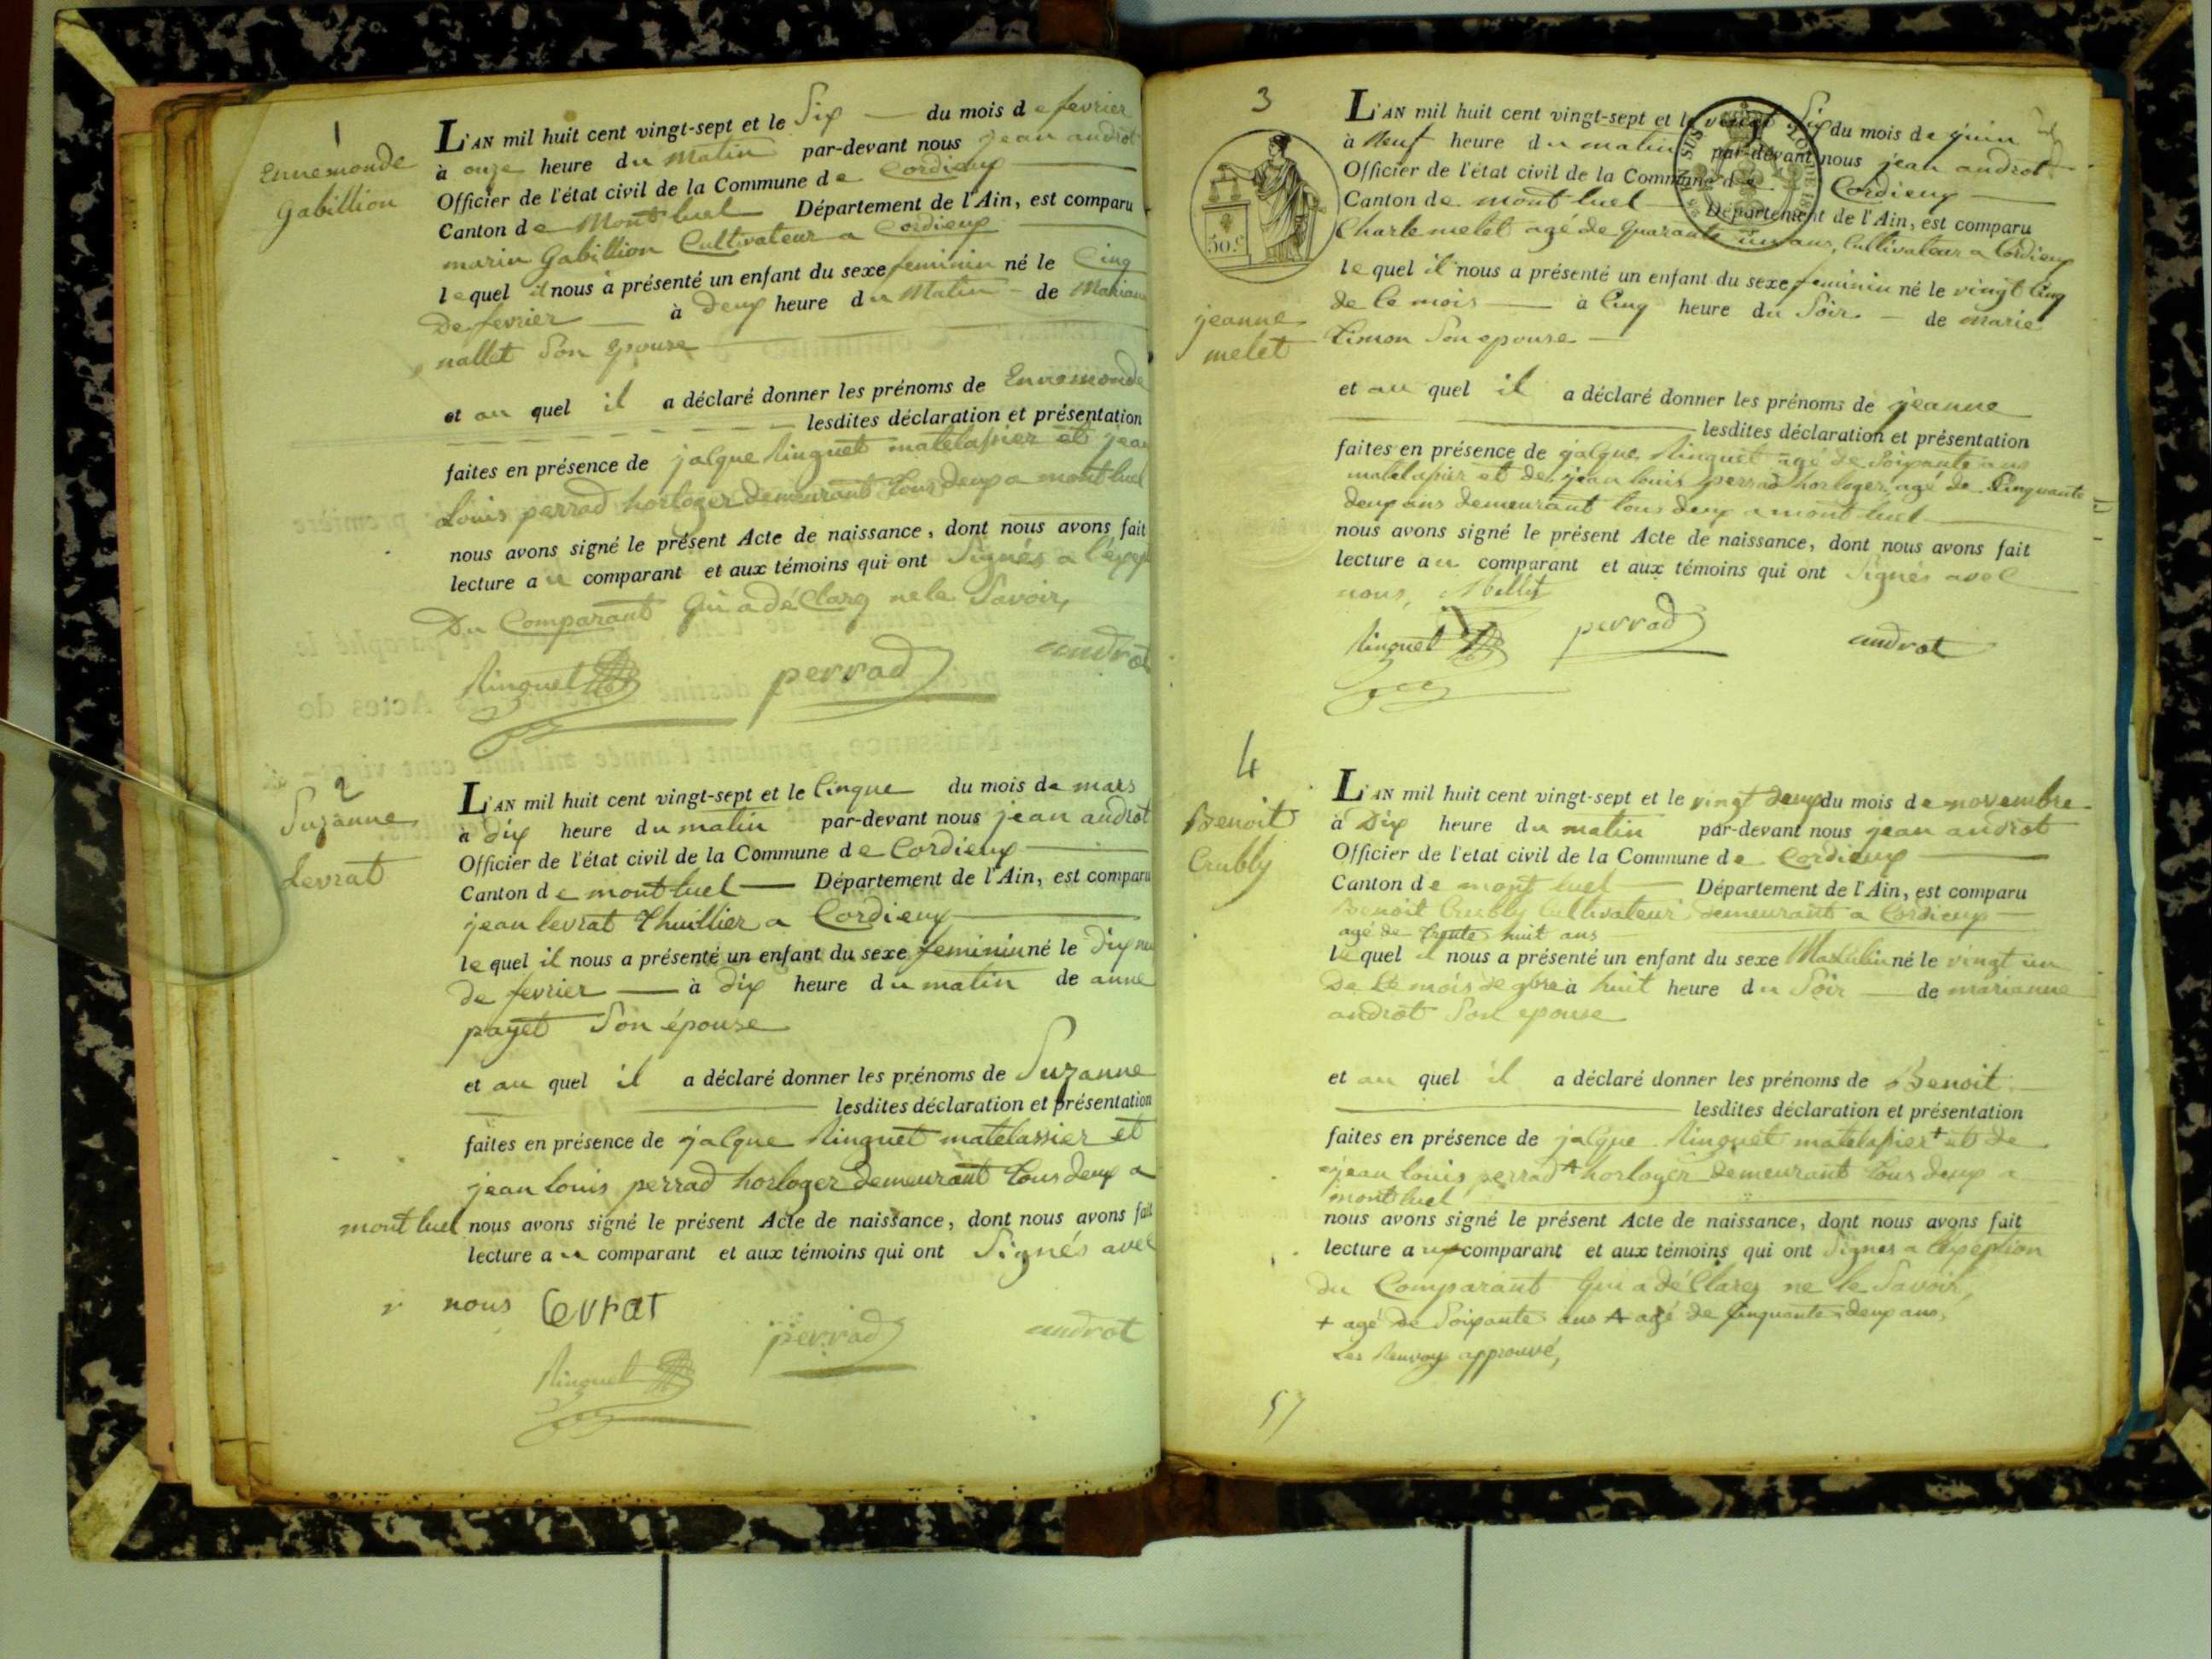 1
Ennemonde
Gabillion
L'AN mil huit cent vingt-sept et le Six du mois de fevrier
à onze heure du Matin par-devant nous jean androt
Officier de l'état civil de la Commune de Cordieux
Canton de Montluel Département de l'Ain, est comparu
marin Gabillion Cultivateur a Cordieux
lequel il nous a présenté un enfant du sexe feminin né le Cinq
De fevrier à Deux heure du Matin de Mariane
nallet Son Epouse
et au quel il a déclaré donner les prénoms de Ennemonde
lesdites déclaration et présentation
faites en présence de jalque Ringuet matelassier et jean
Louis perrad horloger demeurant tous deux a montluel
nous avons signé le présent Acte de naissance, dont nous avons fait
lecture au comparant et aux témoins qui ont Signés a l'exep
Du Comparant Qui a déClarez ne le Savoir,
Ringuet perrad androt
2
Suzanne
Levrat
L'AN mil huit cent vingt-sept et le Cinque du mois de mars
à dix heure du matin par-devant nous jean androt
Officier de l'état civil de la Commune de Cordieux
Canton de montluel Département de l'Ain, est comparu
jean levrat Thuillier a Cordieux
lequel il nous a présenté un enfant du sexe feminin né le dix neu
de fevrier à dix heure du matin de anne
payet Son épouse
et au quel il a déclaré donner les prénoms de Suzanne
lesdites déclaration et présentation
faites en présence de jalque Ringuet matelassier et
jean louis perrad horloger demeurant tous deux a
montluel nous avons signé le présent Acte de naissance, dont nous avons fait
lecture au comparant et aux témoins qui ont Signés avec
nous levrat
perrad androt
Ringuet
3
L'AN mil huit cent vingt-sept et le vingt Six du mois de juin
à Neuf heure du matin par-devant nous jean androt
Officier de l'état civil de la Commune de Cordieux
Canton de montluel Département de l'Ain, est comparu
Charle melet agé de Quarante un ans, Cultivateur a Cordieux
50.c
lequel il nous a présenté un enfant du sexe feminin né le vingt Cinq
de Ce mois à Cinq heure du Soir de marie
Simon Son epouse
jeanne
melet
et au quel il a déclaré donner les prénoms de jeanne
lesdites déclaration et présentation
faites en présence de jalque Ringuet agé de Soixante ans
matelassier et de jean louis perrad horloger, agé de Cinquante
deux ans demeurant tous deux a montluel
nous avons signé le présent Acte de naissance, dont nous avons fait
lecture au comparant et aux témoins qui ont Signés avec
nous,
Ringuet perrad androt
4
Benoit
Crubly
L'AN mil huit cent vingt-sept et le vingt deux du mois de novembre
à Dix heure du matin par-devant nous jean androt
Officier de l'état civil de la Commune de Cordieux
Canton de montluel Département de l'Ain, est comparu
Benoit Crubly Cultivateur demeurant a Cordieux
agé de trente huit ans
lequel il nous a présenté un enfant du sexe Masculin né le vingt un
De Ce mois de 9bre à huit heure du Soir de marianne
androt Son epouse
et au quel il a déclaré donner les prénoms de Benoit
lesdites déclaration et présentation
faites en présence de jalque Ringuet matelassier + et de
jean louis perrad horloger demeurant tous deux a
montluel
nous avons signé le présent Acte de naissance, dont nous avons fait
lecture au comparant et aux témoins qui ont Signés a l'exeption
du Comparant Qui a déClarez ne le Savoir,
+ agé de Soixante ans agé de Cinquante deux ans,
Les Renvoy approuvé,
57